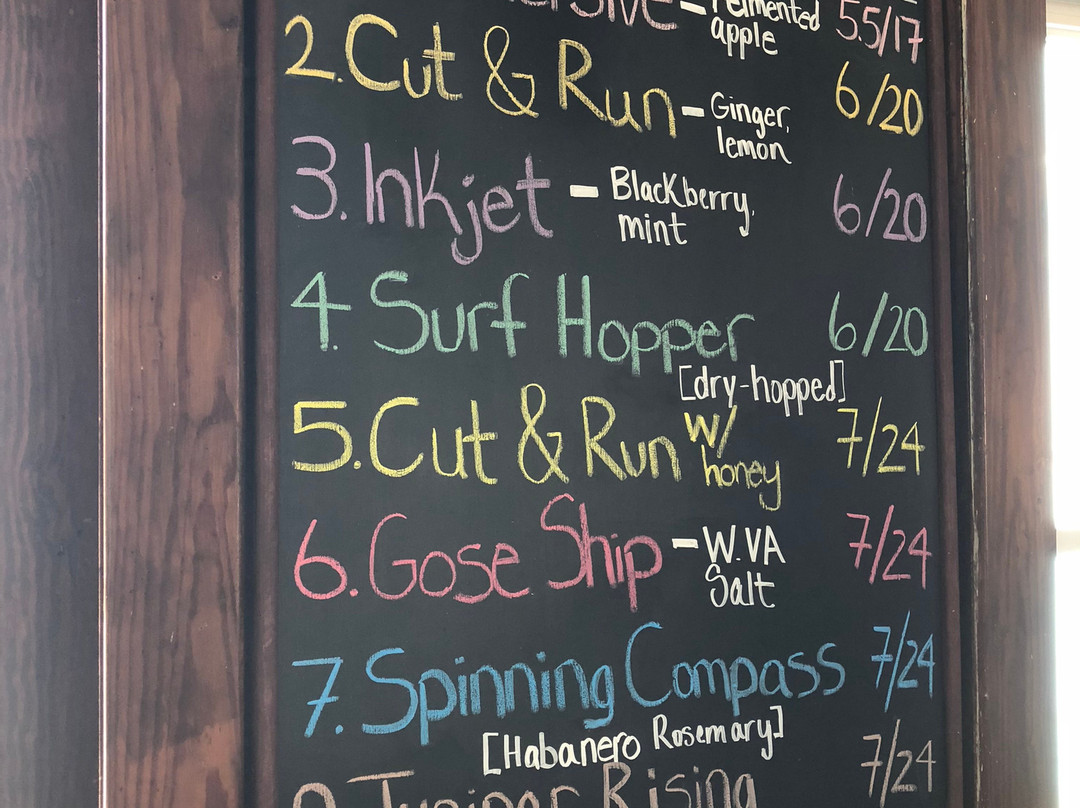 fermented 5.5/17
apple
2. Cut & Run - Ginger, 6/20
lemon
3. Inkjet - Blackberry, 6/20
mint
4. Surf Hopper 6/20
[dry-hopped]
5. Cut & Run w/ 7/24
honey
6. Gose Ship - W.VA 7/24
Salt
7. Spinning Compass 7/24
[Habanero Rosemary]
Juniper Rising 7/24